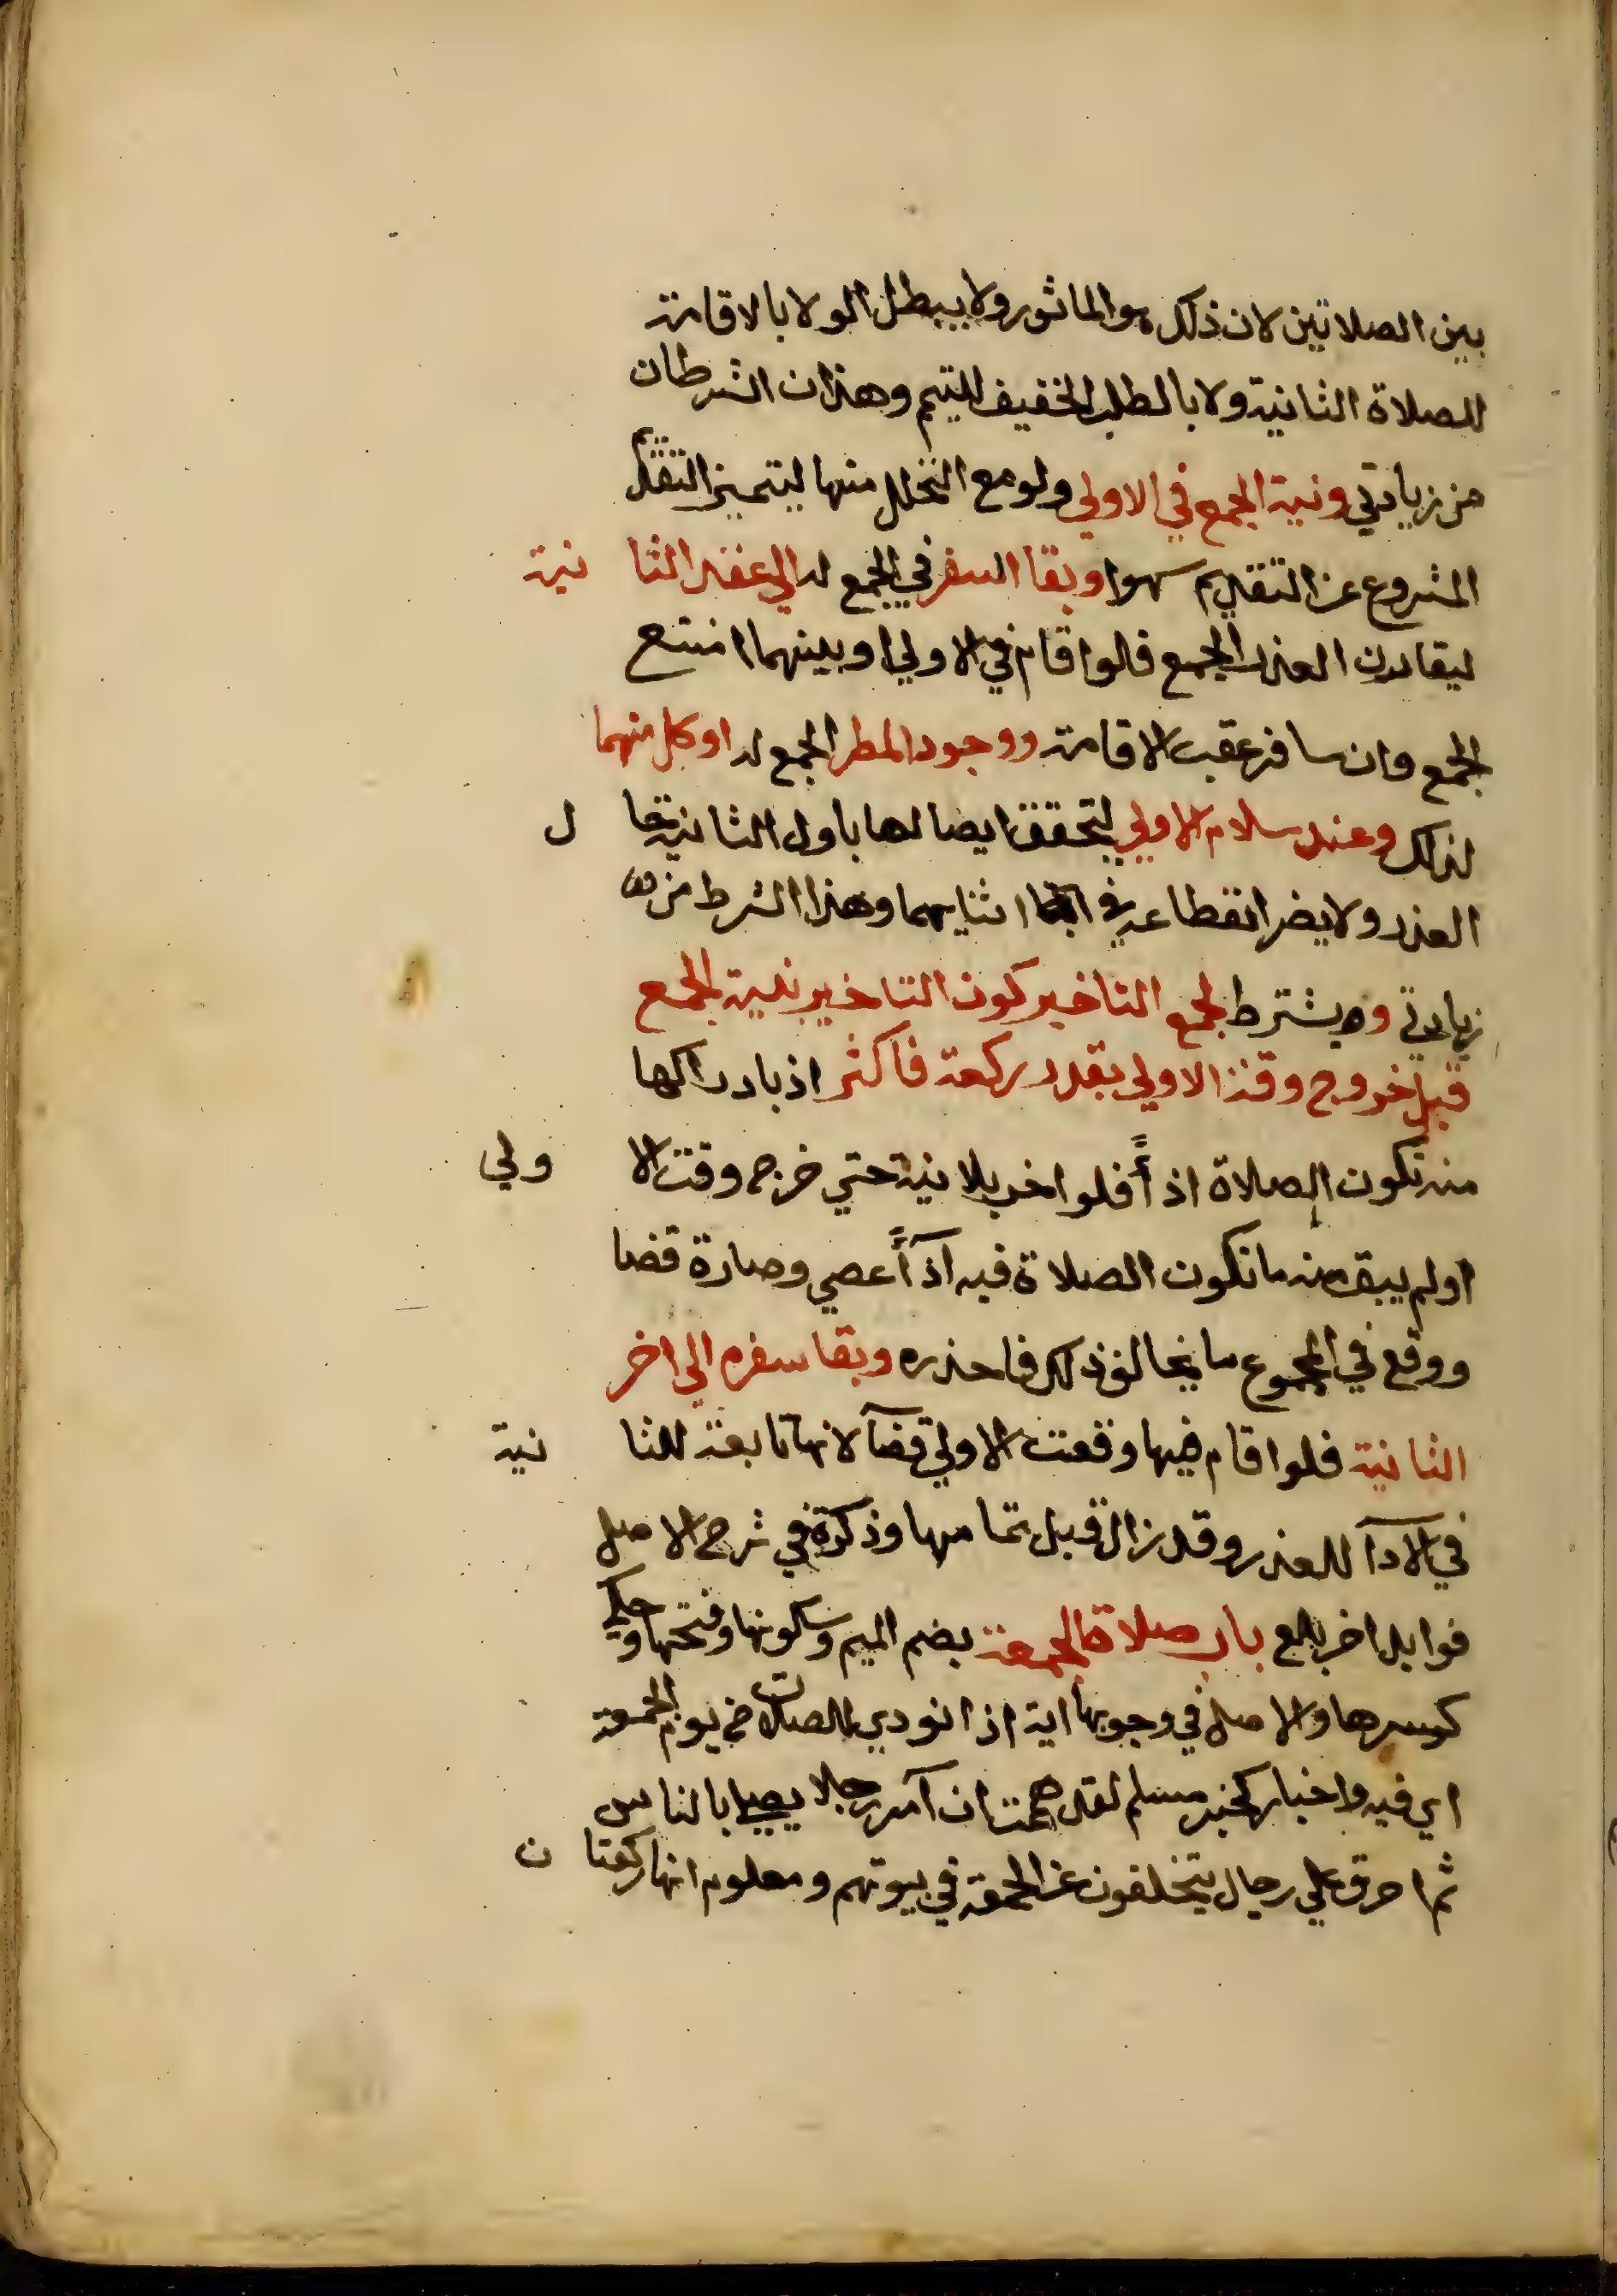 بين الصلاتين لان ذلك هو الماثور ولا يبطل الولا بالاقامة
للصلاة الثانية ولا بالطلب الخفيف للتيمم وهذان الشرطان
من زيادتي ونية الجمع في الاولي ولو مع التحلل منها ليتميز التقديم
المشروع عن التقديم سهوا وبقا السفر في الجمع له الي عقد الثانية
ليقارن العذر الجمع فلو اقام في الاولي او بينهما امتنع
الجمع وان سافر عقب الاقامة ووجود المطر الجمع له او كل منهما
لذلك وعند سلام الاولي لتحقق ايصالها باول الثانية حال
العذر ولا يضر انقطاعه في اثنايهما وهذا الشرط من
زيادتي و يشترط لجمع التاخير كون التاخير بنية الجمع
قبل خروج وقت الاولي بقدر ركعة فاكثر اذ بادراكها
منه تكون الصلاة اذ أً فلو اخر بلا نية حتي خرج وقت الاولي
او لم يبق منه ما تكون الصلاة فيه آذ آً عصي وصارة قضا
ووقع في المجموع ما يخالف ذلك فاحذره وبقا سفره الي اخر
الثانية فلو اقام فيها وقعت الاولي قضآ لانها تابعة للثانية
في الادآ للعذر وقد زال قبل تمامها وذكرة في شرح الاصل
فوايد اخر باب صلاة الجمعة بضم الميم وسكونها وفتحها وحكي
كسرها والاصل في وجوبها اية اذا نودي للصلات من يوم الجمعة
اي فيه واخبار كخبر مسلم لقد هممت ان آمر رجلا يصلي بالناس
ثم احرق علي رجال يتخلفون عن الجمعة في بيوتهم ومعلوم انها ركعتان